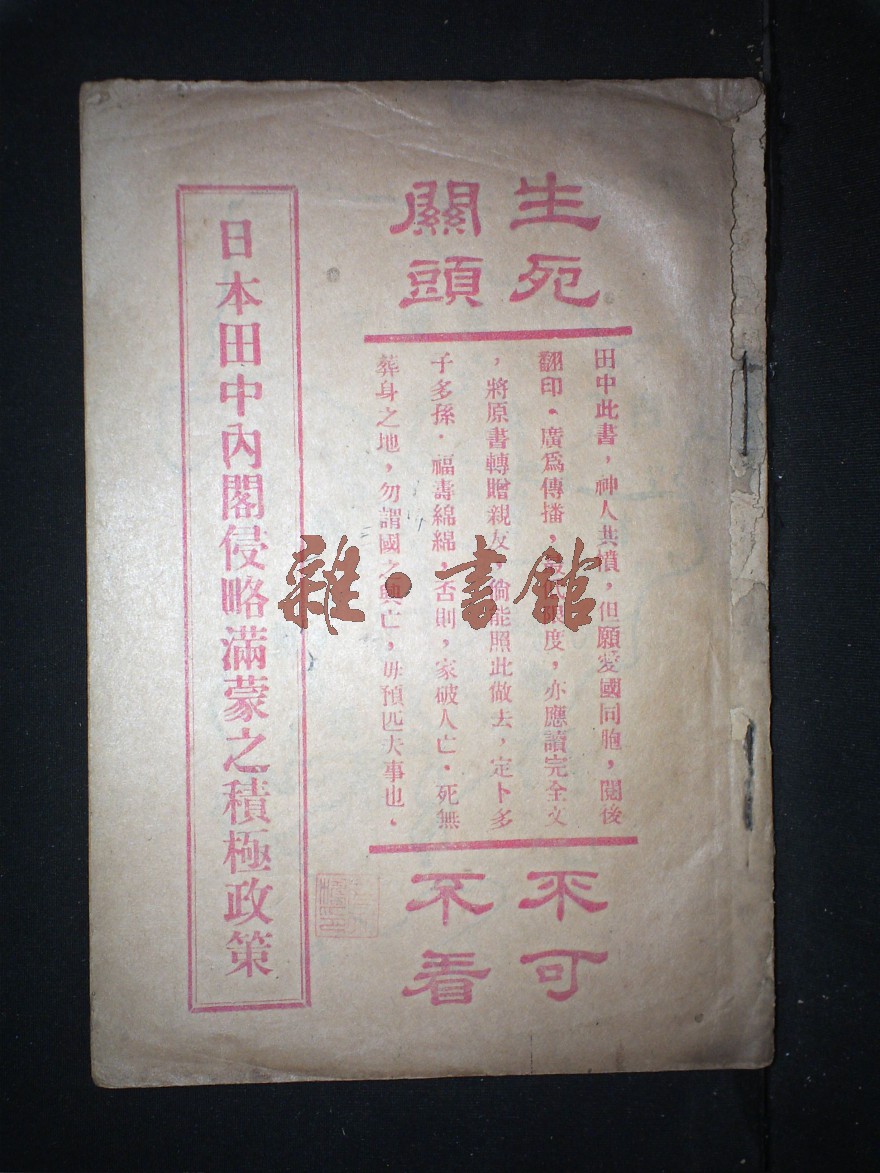 生死
關頭
田中此書，神人共憤，但願愛國同胞，閱後
翻印·廣爲傳播，限度，亦應讀完全文
，將原書轉贈親友，倘能照此做去，定卜多
子多孫·福壽綿綿，否則，家破人亡·死無
葬身之地，勿謂國之興亡，毋預匹夫事也·
不可
不看
日本田中內閣侵略滿蒙之積極政策
雜·書館